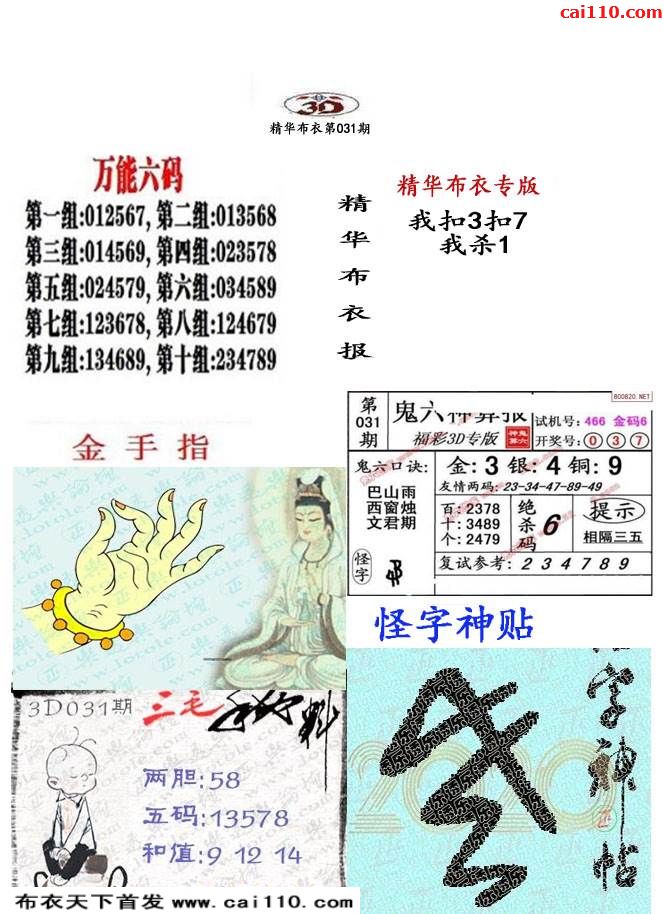 cai110.com
3D
精华布衣第031期
万能六码
第一组:012567, 第二组:013568
第三组:014569, 第四组:023578
第五组:024579, 第六组:034589
第七组:123678, 第八组:124679
第九组:134689, 第十组:234789
精华布衣报
精华布衣专版
我扣3扣7
我杀1
金手指
800820.NET
第031期
鬼六神算报
福彩3D专版
神鬼算六
试机号: 466 金码6
开奖号: 0 3 7
鬼六口诀:
巴山雨
西窗烛
文君期
怪字
金: 3 银: 4 铜: 9
友情两码: 23-34-47-89-49
百: 2378
十: 3489
个: 2479
绝杀码 6
提示
相隔三五
复试参考: 2 3 4 7 8 9
怪字神贴
怪字神帖
2020
3D031期 三毛
两胆:58
五码:13578
和值:9 12 14
布衣天下首发 www.cai110.com